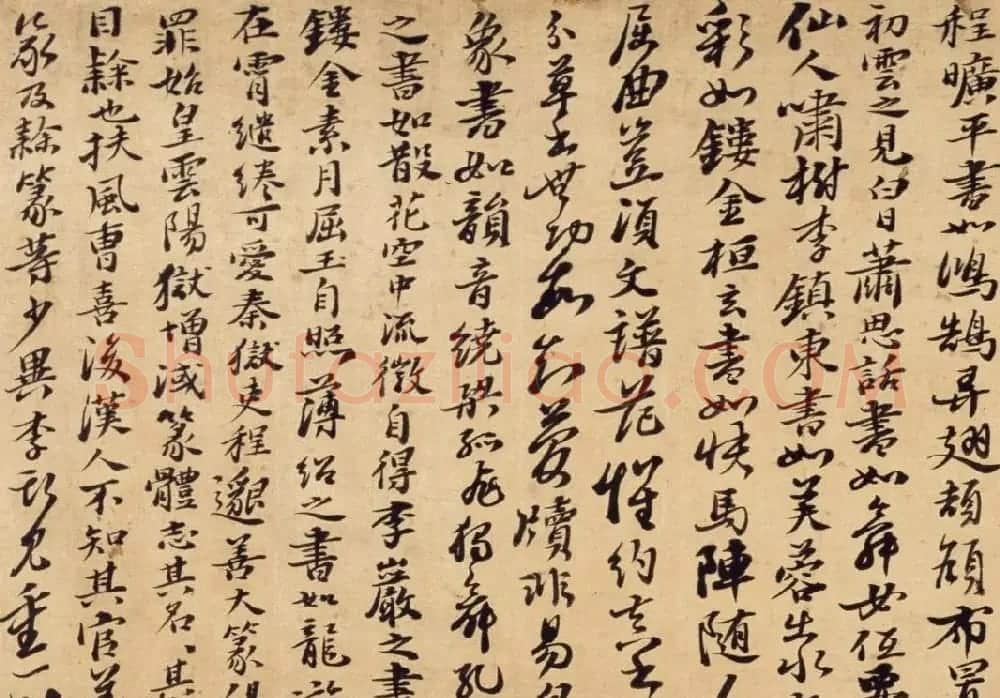 程曠平書如鴻鵠弄翅頡頏布置
初雲之見白日蕭思話書如舞女低腰
仙人嘯樹李鎮東書如芙蓉出水
彩如鏤金桓玄書如快馬陣随人
屈曲豈須文譜范懷約真書
分草書無功故知簡牘非易皇
象書如韻音繞梁孤飛獨舞孔
之書如散花空中流徵自得李巖之書
鏤金素月屈玉自照薄紹之書如龍游
在霄繾綣可愛秦獄吏程邈善大篆得
罪始皇雲陽獄增減篆體志其名其
目隸也扶風曹喜後漢人不知其官善
篆及隸篆等少異李斯見重一
Shufaziliao.COM